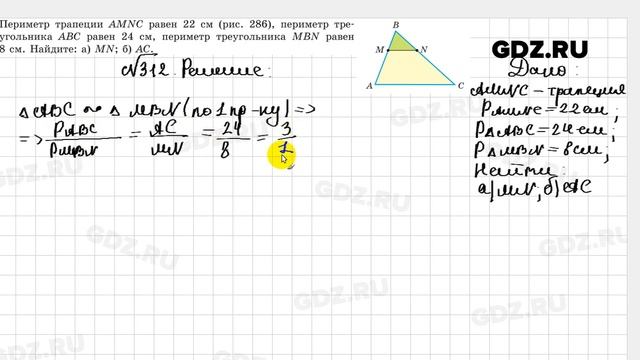 Периметр трапеции AMNC равен 22 см (рис. 286), периметр тре-
угольника ABC равен 24 см, периметр треугольника MBN равен
8 см. Найдите: а) MN; б) AC.
B
M N
A C
GDZ.RU
№312. Решение:
Дано:
△ABC ∾ △MBN (по 1 пр-ку) =>
=> P ABC / P MBN = AC / MN = 24 / 8 = 3 / 1
AMNC – трапеция
P AMNC = 22 см;
P △ABC = 24 см;
P △MBN = 8 см;
Найти:
а) MN; б) AC
GDZ.RU
GDZ.RU
GDZ.RU
GDZ.RU
GDZ.RU